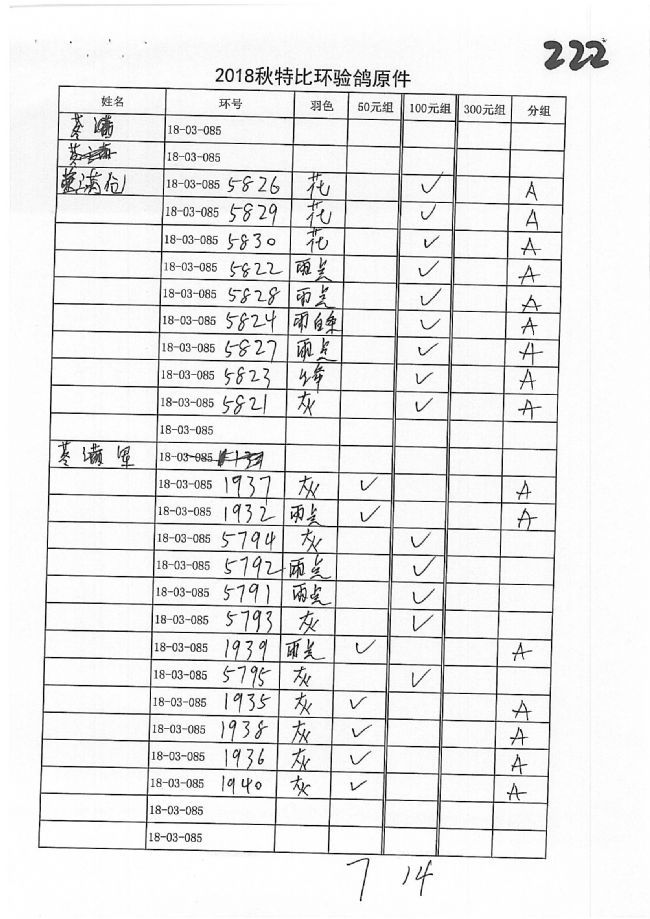 222
2018秋特比环验鸽原件
姓名 环号 羽色 50元组 100元组 300元组 分组
18-03-085
18-03-085
18-03-085 5826 花 ✓ A
18-03-085 5829 花 ✓ A
18-03-085 5830 花 ✓ A
18-03-085 5822 雨点 ✓ A
18-03-085 5828 雨点 ✓ A
18-03-085 5824 雨白条 ✓ A
18-03-085 5827 雨点 ✓ A
18-03-085 5823 ✓ A
18-03-085 5821 灰 ✓ A
18-03-085
18-03-085
18-03-085 1937 灰 ✓ A
18-03-085 1932 雨点 ✓ A
18-03-085 5794 灰 ✓
18-03-085 5792 雨点 ✓
18-03-085 5791 雨点 ✓
18-03-085 5793 灰 ✓
18-03-085 1939 雨点 ✓ A
18-03-085 5795 灰 ✓
18-03-085 1935 灰 ✓ A
18-03-085 1938 灰 ✓ A
18-03-085 1936 灰 ✓ A
18-03-085 1940 灰 ✓ A
18-03-085
18-03-085
7 14